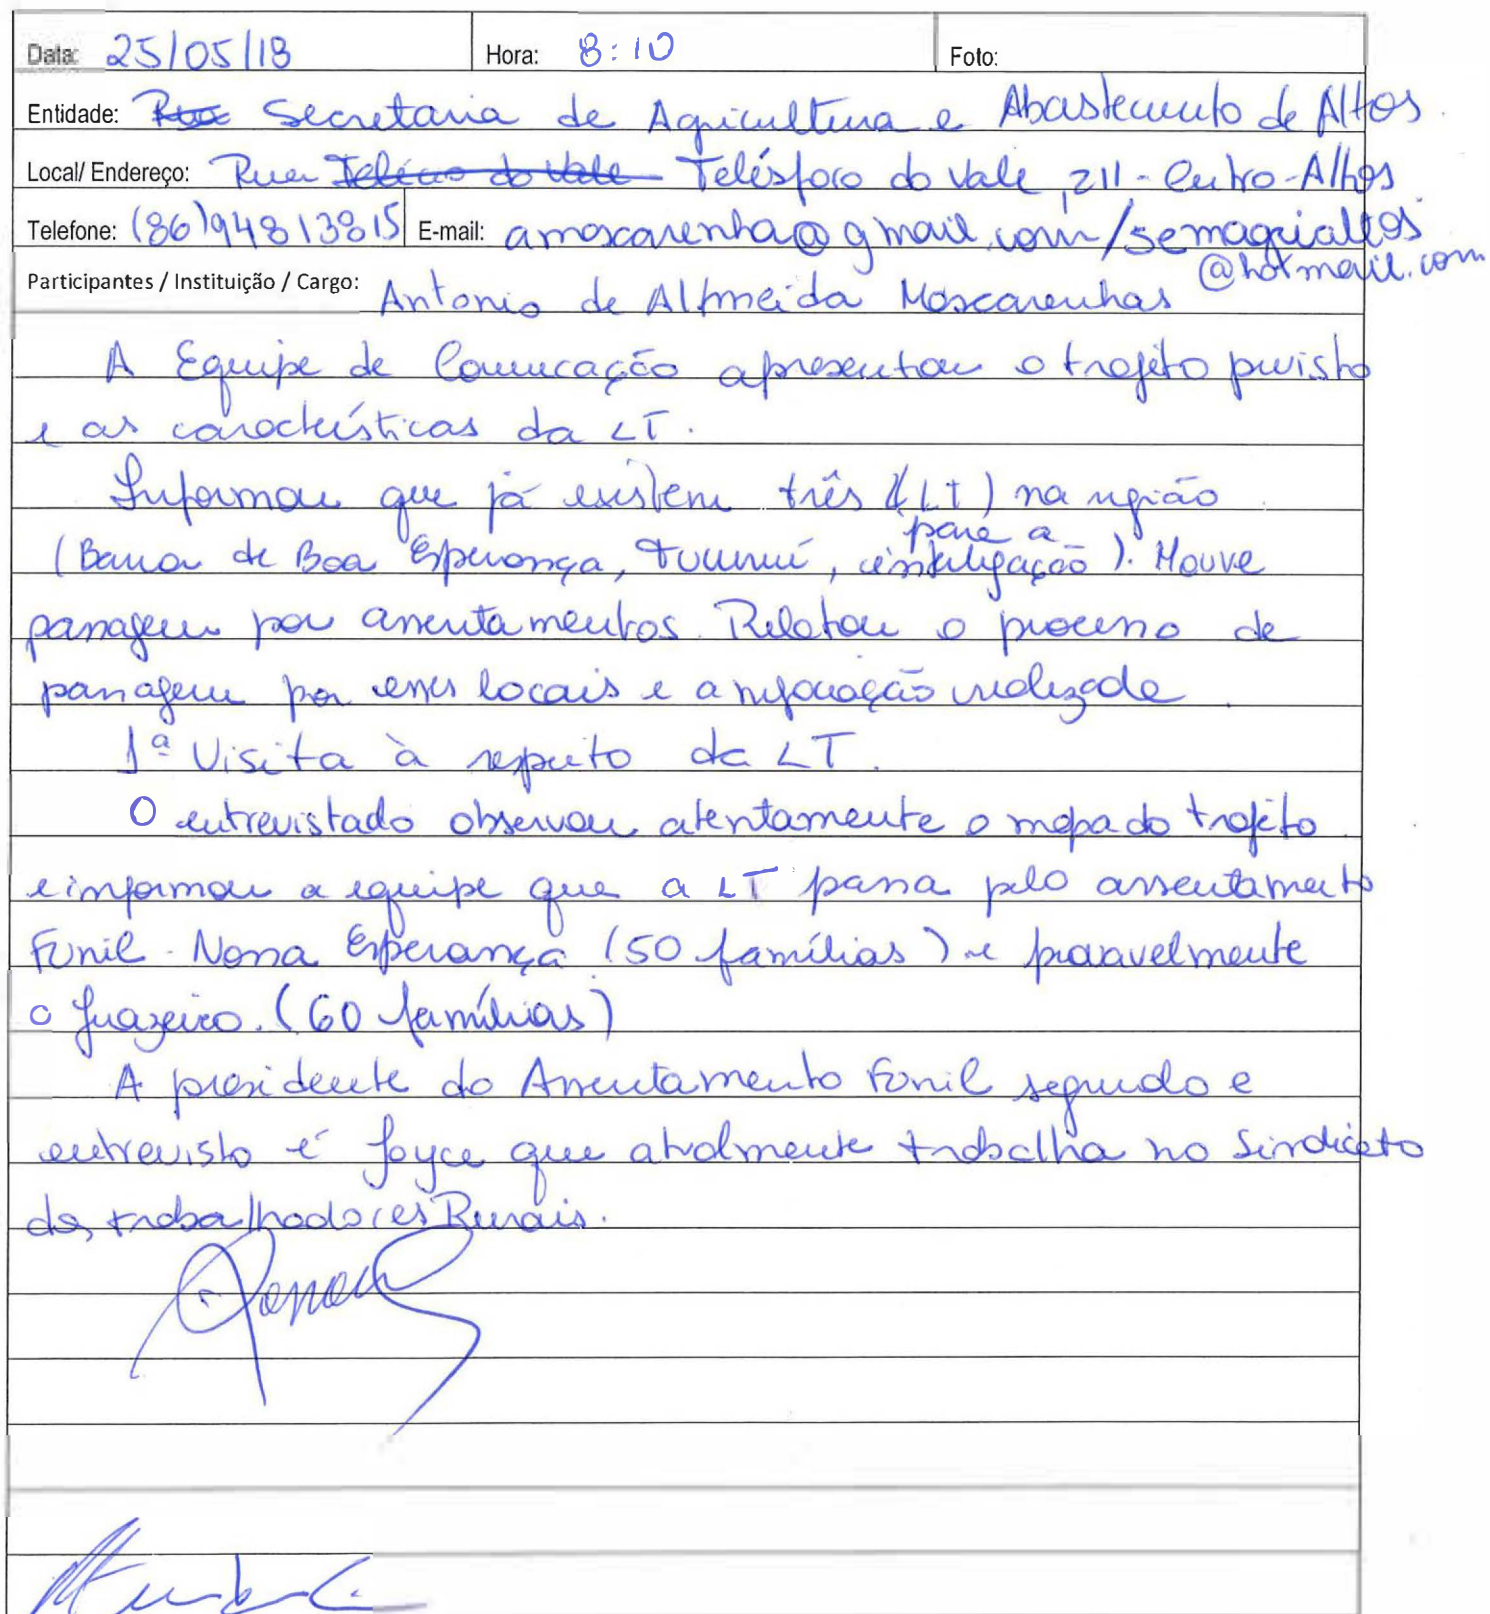 Data: 25/05/18 Hora: 8:10 Foto:
Entidade: Rua Secretaria de Agricultura e Abastecimento de Altos.
Local/ Endereço: Rua Telésforo do Vale, 211 - Centro - Altos
Telefone: (86)94813815 E-mail: amascarenha@gmail.com/semagrialtos
@hotmail.com
Participantes / Instituição / Cargo: Antonio de Almeida Mascarenhas
A Equipe de Comunicação apresentou o trajeto previsto
e as características da LT.
Informou que já existem três (LT) na região
para a
(Barra de Boa Esperança, Tucuruí, interligação). Houve
passagem por assentamentos. Relatou o processo de
passagem por esses locais e a negociação realizada.
1ª Visita à respeito da LT.
O entrevistado observou atentamente o mapa do trajeto
e informou a equipe que a LT passa pelo assentamento
Funil - Nossa Esperança (50 famílias) e provavelmente
o Juazeiro. (60 famílias)
A presidente do Assentamento Funil segundo e
entrevisto é Joyce que atualmente trabalha no Sindicato
dos trabalhadores Rurais.